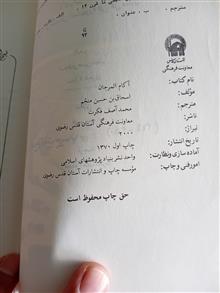 مترجم . ب . عنوان .
معاونت فرهنگی
نام کتاب: آکام المرجان
مؤلف: اسحاق بن حسین منجم
مترجم: محمد آصف فکرت
ناشر: معاونت فرهنگی آستان قدس رضوی
تیراژ: ۲۰۰۰
تاریخ انتشار: چاپ اول ۱۳۷۰
آماده سازی ونظارت: واحد نشر بنیاد پژوهشهای اسلامی
امورفنی و چاپ: مؤسسه چاپ و انتشارات آستان قدس رضوی
حق چاپ محفوظ است